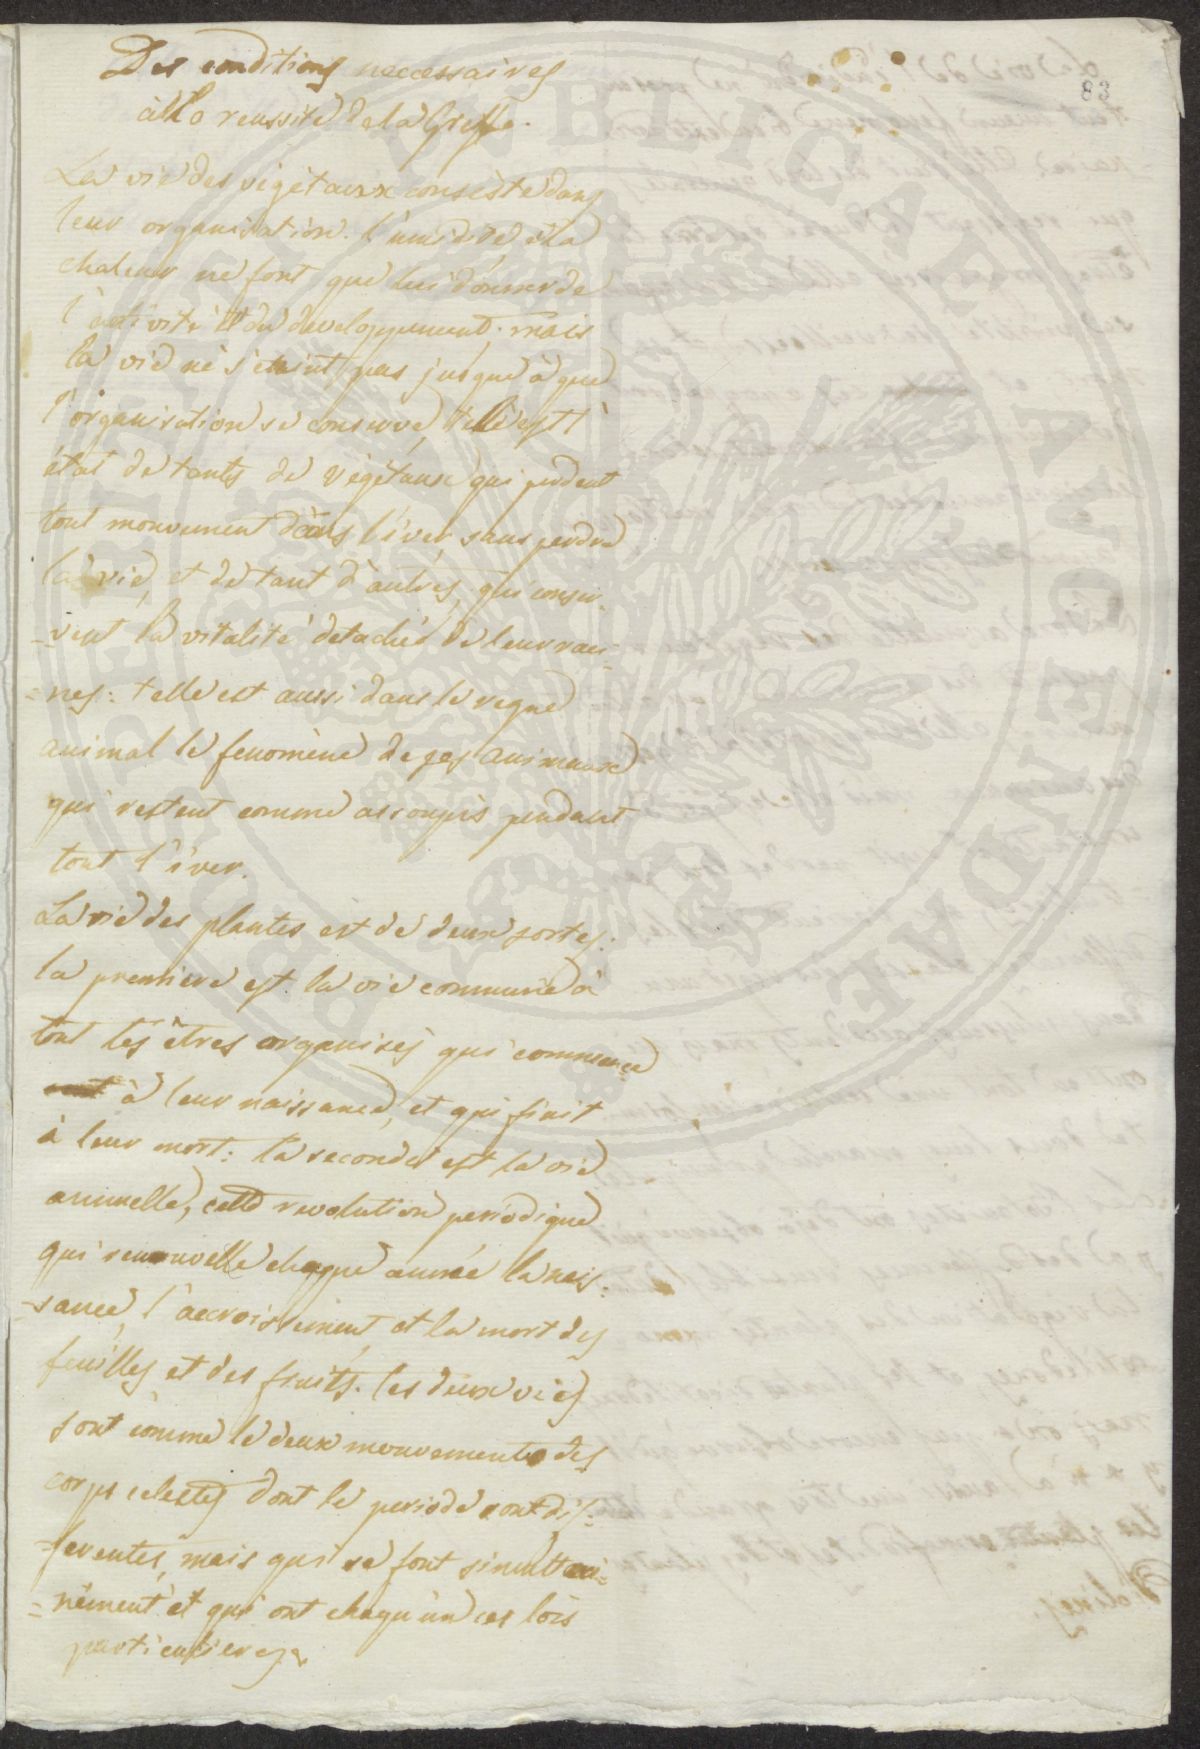 83
Des conditions necessaires
à la reussite de la Greffe.
La vie des vegetaux consiste dans
leur organisation. l'umidité et la
chaleur ne font que lui donner de
l'activité et du developpement. mais
la vie ne s'eteint pas jusque à que
l'organisation se conserve, telle est l'
état de tants de vegetaux qui perdent
tout mouvement dans l'iver sans perdre
la vie, et de tant d'autres, qui conser-
=vent la vitalité detachés de leur raci=
=nes: telle est aussi dans le regne
animal le fenomène de ces animaux
qui restent comme assoupis pendant
tout l'iver.
La vie des plantes est de deux sortes.
la premiere est la vie commune à
tout les êtres organisés qui commence
à leur naissance, et qui finit
à leur mort: la seconde est la vie
annuelle, cette revolution periodique
qui renouvelle chaque année la nais-
=sance, l'accroissement, et la mort des
feuilles et des fruits. les deux vies
sont comme le deux mouvements des
corps celestes dont le periode sont dif=
=ferentes, mais qui se font simulta=
=nément et qui ont chaqu'un ces lois
particulieres.
PUBLICAE AVGENDAE